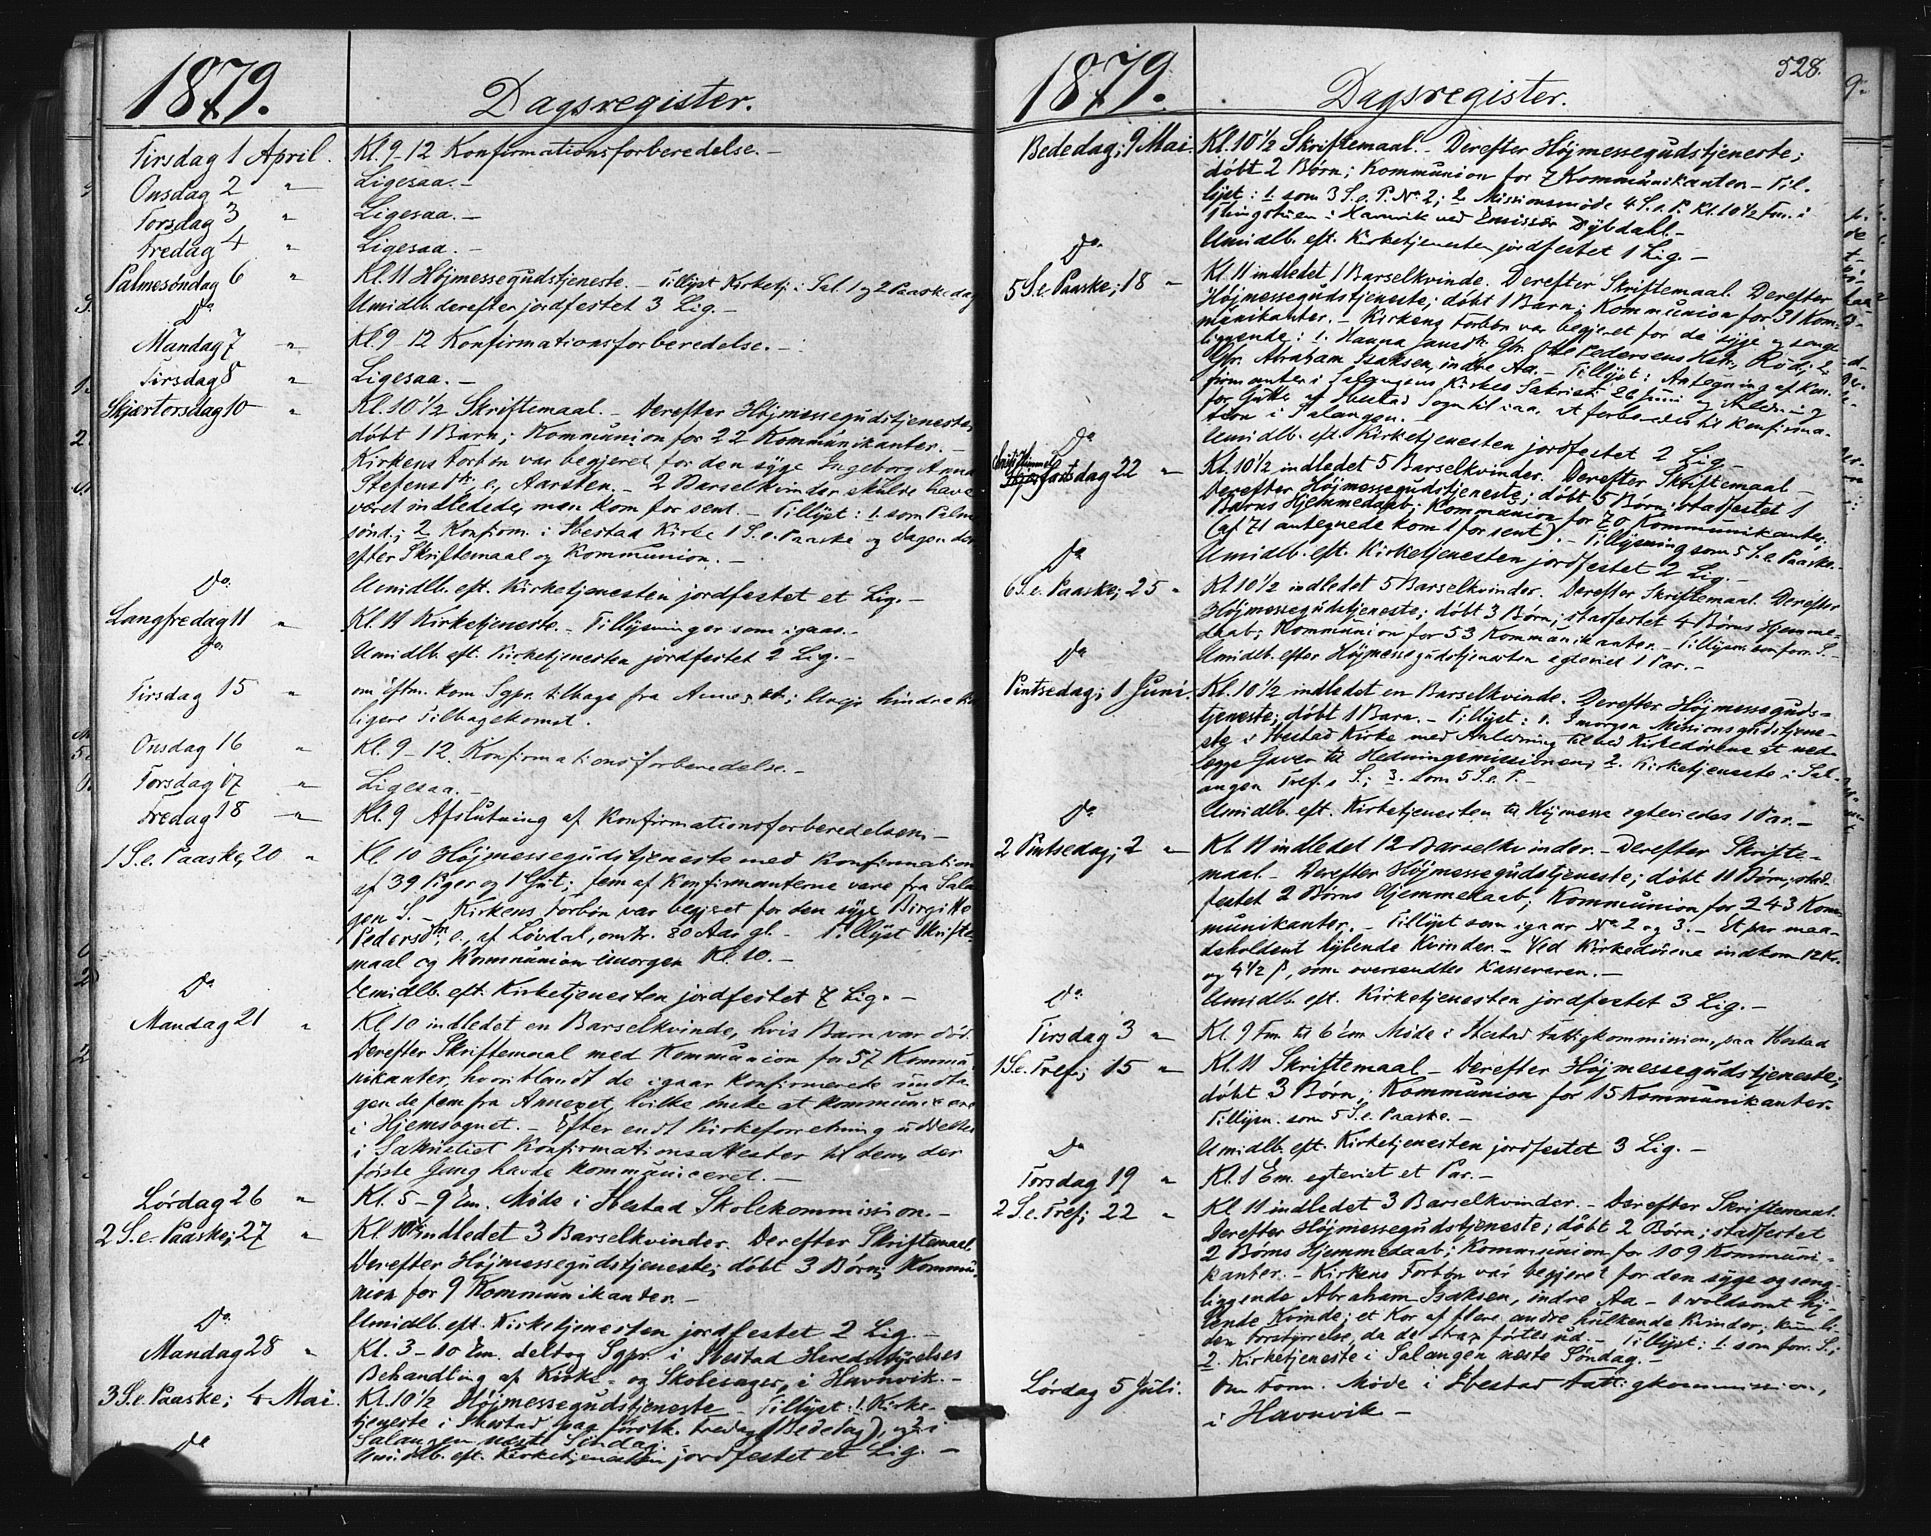 1879.
Dagsregister.
Tirsdag 1 April. Kl. 9-12 Konfirmationsforberedelse. -
Onsdag 2 " Ligesaa. -
Torsdag 3 " Ligesaa. -
Fredag 4 " Ligesaa. -
Palmesøndag 6 " Kl. 11 Højmessegudstjeneste. - Tillyst Kirketj. i Sal. 1 og 2 Paaskedag
Do Umidlb. derefter jordfestet 3 Lig. -
Mandag 7 " Kl. 9-12 Konfirmationsforberedelse. -
Tirsdag 8 " Ligesaa. -
Skjærtorsdag 10 " Kl. 10 1/2 Skriftemaal. - Derefter Højmessegudstjeneste;
døbt 1 Barn; Kommunion for 22 Kommunikanter. -
Kirkens Forbøn var begjeret for den syge Ingeborg Anna
Stefensdtr., e., Aarsten. - 2 Barselkvinder skulde have
været indledede, men kom for sent. - Tillyst: 1. som Palme
sønd.; 2 Konfirm. i Ibestad Kirke 1 S. e. Paaske og Dagen der
efter Skriftemaal og Kommunion. -
Do. Umidlb. eft. Kirketjenesten jordfestet et Lig. -
Langfredag 11 " Kl. 11 Kirketjeneste. - Tillysninger som igaar. -
Do. Umidlb. eft. Kirketjenesten jordfestet 2 Lig. -
Tirsdag 15 " om Eftm. kom Sgpr. tilbage fra Annexet; Uvejr hindrede
ligere Tilbagekomst.
Onsdag 16 " Kl. 9-12 Konfirmationsforberedelse. -
Torsdag 17 " Ligesaa. -
Fredag 18 " Kl. 9 Afslutning af Konfirmationsforberedelsen. -
1 S. e. Paaske; 20 " Kl. 10 Højmessegudstjeneste med Konfirmation
af 39 Piger og 1 Gut; fem af Konfirmanterne vare fra Sala
gen S. - Kirkens Forbøn var begjeret for den syge Birgitte
Pedersdtr., e., af Løvdal, omtr. 80 Aar gl. - Tillyst Skrifte
maal og Kommunion imorgen Kl. 10. -
Do Umidlb. eft. Kirketjenesten jordfestet 7 Lig. -
Mandag 21 " Kl. 10 indledet en Barselkvinde, hvis Barn var død.
Derefter Skriftemaal med Kommunion for 57 Kommu
nikanter, hvoriblandt de igaar konfirmerede undta
gen de fem fra Annexet, hvilke ønske at kommunicere
i Hjemsognet. - Efter endt Kirkeforretning uddeltes
i Sakristiet Konfirmationsattester til dem, der
første Gang havde kommuniceret. -
Lørdag 26 " Kl. 5-9 Em. Møde i Ibestad Skolekommission. -
2 S. e. Paaske; 27 " Kl. 10 1/2 indledet 3 Barselkvinder. Derefter Skriftemaal.
Derefter Højmessegudstjeneste; døbt 3 Børn; Kommu
nion for 9 Kommunikanter. -
Do. Umidlb. eft. Kirketjenesten jordfestet 2 Lig. -
Mandag 28 " Kl. 3-10 Em. deltog Sgpr. i Ibestad Heredsstyrelses
Behandling af Kirke- og Skolesager, i Havnvik. -
3 S. e. Paaske; 4 Mai. Kl. 10 1/2 Højmessegudstjeneste. Tillyst: 1. Kirke-
tjeneste i Ibestad paa førstk. Fredag (Bededag), og 2 i
Salangen næste Søndag.
Do Umidlb. eft. Kirketjenesten jordfestet et Lig. -
1879.
Dagsregister.
528.
Bededag; 9 Mai. Kl. 10 1/2 Skriftemaal. - Derefter Højmessegudstjeneste;
døbt 2 Børn; Kommunion for 7 Kommunikanter. - Til-
lyst: 1 som 3 S. e. P. No 2; 2. Missionsmøde 4 S. e. P. Kl. 10 1/2 Fm. i
Thingstuen i Havnvik ved Emissær Dybdahl. -
Do. Umidlb. eft. Kirketjenesten jordfestet 1 Lig. -
5 S. e. Paaske; 18 " Kl. 11 indledet 1 Barselkvinde. Derefter Skriftemaal. Derefter
Højmessegudstjeneste; døbt 1 Barn; Kommunion for 31 Kom-
munikanter. - Kirkens Forbøn var begjeret for de syge og senge
liggende: 1. Hanna Jansdtr. Gbr. Ole Pedersens Hstr., Rød; 2.
Gbr. Abraham Isaksen, indre Aa. - Tillyst: Antegning af Kon-
firmanter i Salangens Kirkes Sakristi 26 Juni og Anledning
for Gutter af Ibestad Sogn til iaar at forberedes til Konfirma-
tion i Salangen. -
Do Umidlb. eft. Kirketjenesten jordfestet 2 Lig. -
Christi Himmel fartsdag 22 " Kl. 10 1/2 indledet 5 Barselkvinder. Derefter Skriftemaal
Derefter Højmessegudstjeneste; døbt 5 Børn; stadfestet 1
Barns Hjemmedaab; Kommunion for 70 Kommunikanter,
(af 71 antegnede kom 1 for sent). - Tillysning som 5 S. e. Paaske.
Do Umidlb. eft. Kirketjenesten jordfestet 2 Lig. -
6 S. e. Paaske; 25 " Kl. 10 1/2 indledet 5 Barselkvinder. Derefter Skriftemaal. Derefter
Højmessegudstjeneste; døbt 3 Børn; stadfestet 4 Børns Hjemme-
daab; Kommunion for 53 Kommunikanter. - Tillysn. som forr. S. -
Do Umidlb. efter Højmessegudstjenesten egteviet 1 Par. -
Pintsedag; 1 Juni. Kl. 10 1/2 indledet en Barselkvinde. Derefter Højmesseguds-
tjeneste; døbt 1 Barn. - Tillyst: 1. Imorgen Missionsgudstjene-
ste i Ibestad Kirke med Anledning til ved Kirkedørene at ned-
legge Gaver til Hedningemissionen; 2. Kirketjeneste i Sal-
angen Tref. S.; 3. som 5 S. e. P. -
Do. Umidlb. eft. Kirketjenesten til Højmesse egteviedes 1 Par. -
2 Pintsedag; 2 " Kl. 11 indledet 12 Barselkvinder. - Derefter Skrifte-
maal. - Derefter Højmessegudstjeneste; døbt 11 Børn; stad-
festet 2 Børns Hjemmedaab; Kommunion for 243 Kom-
munikanter. - Tillyst som igaar No 2 og 3. - Et par maa-
deholdent hylende Kvinder. - Ved Kirkedørene indkom 12 Kr.
og 4 1/2 s, som oversendtes Kassereren. -
Do. Umidlb. eft. Kirketjenesten jordfestet 3 Lig. -
Tirsdag 3 " Kl. 9 Fm. til 6 Em. Møde i Ibestad Fattigkommission, paa Ibestad
1 S. e. Tref.; 15 " Kl. 11 Skriftemaal. - Derefter Højmessegudstjeneste;
døbt 3 Børn; Kommunion for 15 Kommunikanter.
Tillysn. som 5 S. e. Paaske. -
Do Umidlb. eft. Kirketjenesten jordfestet 3 Lig. -
Torsdag 19 " Kl. 1 Em. egteviet et Par. -
2 S. e. Tref; 22 " Kl. 11 indledet 3 Barselkvinder. - Derefter Skriftemaal.
Derefter Højmessegudstjeneste; døbt 2 Børn; stadfestet
2 Børns Hjemmedaab; Kommunion for 109 Kommuni-
kanter. - Kirkens Forbøn var begjeret for den syge og seng-
liggende Abraham Isaksen, indre Aa. - 1 voldsomt hy-
lende Kvinde; et Kor af flere andre hulkende Kvinder; kun li-
den Forstyrrelse, da de strax førtes ud. - Tillyst: 1. som forr. S.;
2. Kirketjeneste i Salangen næste Søndag. -
Lørdag 5 Juli. Om Form. Møde i Ibestad Fattigkommission,
i Havnvik. -